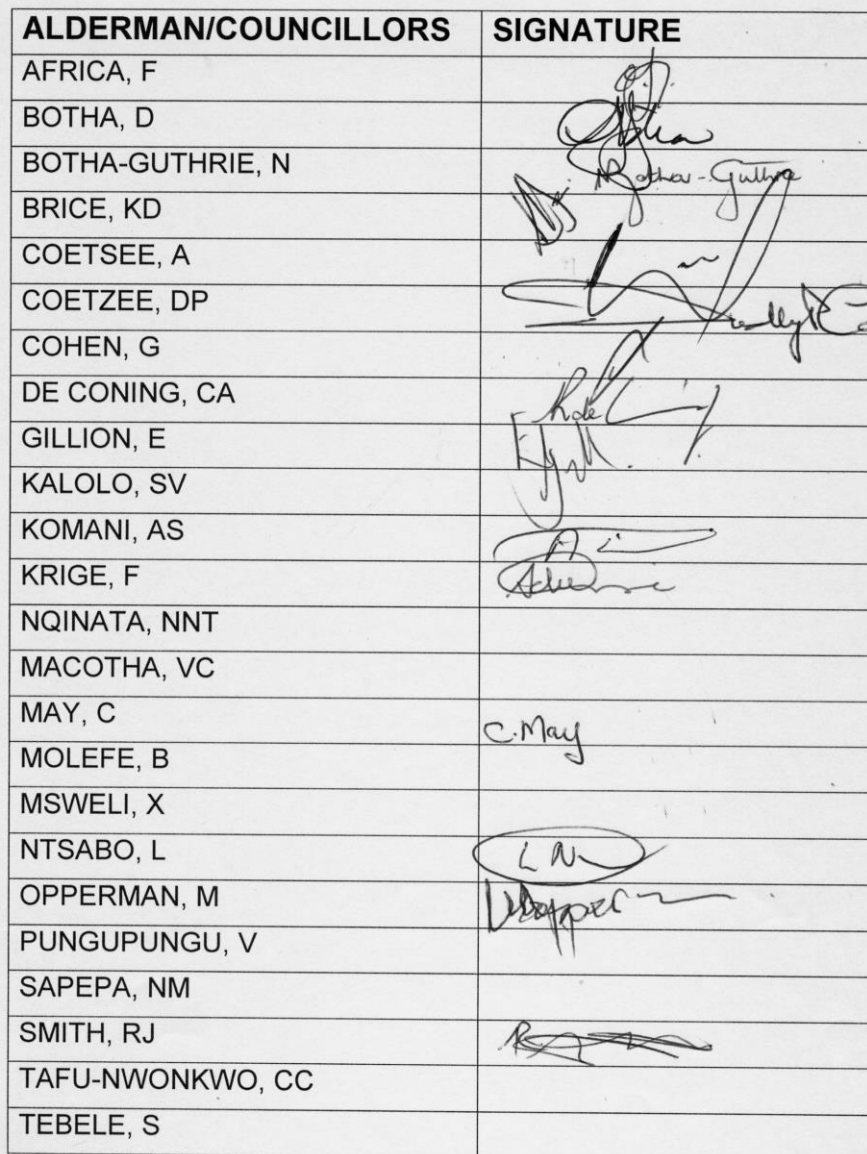 ALDERMAN/COUNCILLORS SIGNATURE
AFRICA, F
BOTHA, D
BOTHA-GUTHRIE, N Botha-Guthrie
BRICE, KD
COETSEE, A
COETZEE, DP
COHEN, G
DE CONING, CA
GILLION, E
KALOLO, SV
KOMANI, AS
KRIGE, F
NQINATA, NNT
MACOTHA, VC
MAY, C C. May
MOLEFE, B
MSWELI, X
NTSABO, L L N
OPPERMAN, M
PUNGUPUNGU, V
SAPEPA, NM
SMITH, RJ
TAFU-NWONKWO, CC
TEBELE, S